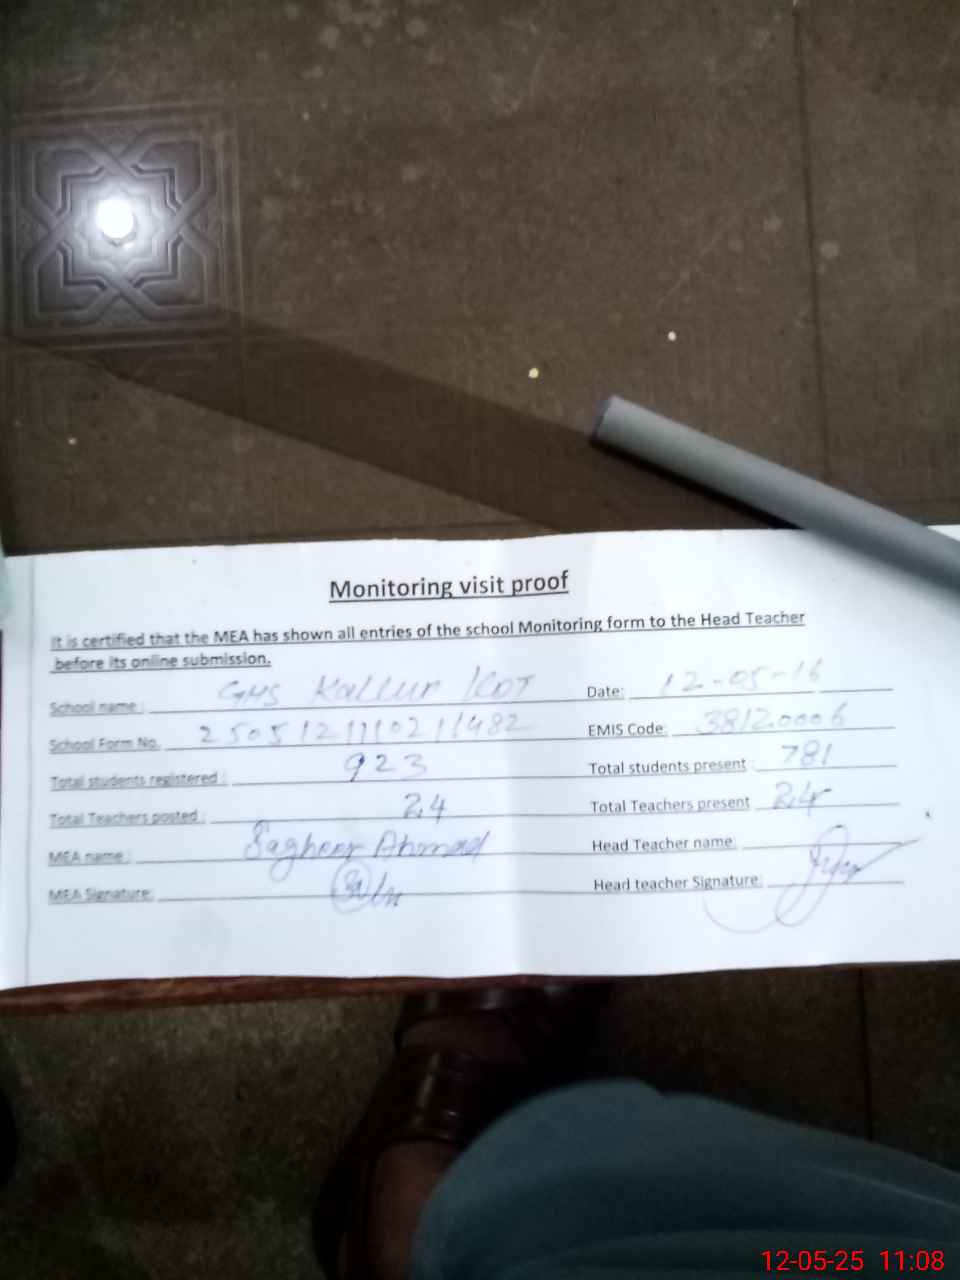 Monitoring visit proof
It is certified that the MEA has shown all entries of the school Monitoring form to the Head Teacher
before its online submission.
School name: GHS Kallur Kot Date: 12-05-16
School Form No. 2505121110211482 EMIS Code: 38120006
Total students registered: 923 Total students present: 781
Total Teachers posted: 24 Total Teachers present 24
MEA name: Sagheer Ahmad Head Teacher name:
MEA Signature: Head teacher Signature:
12-05-25 11:08